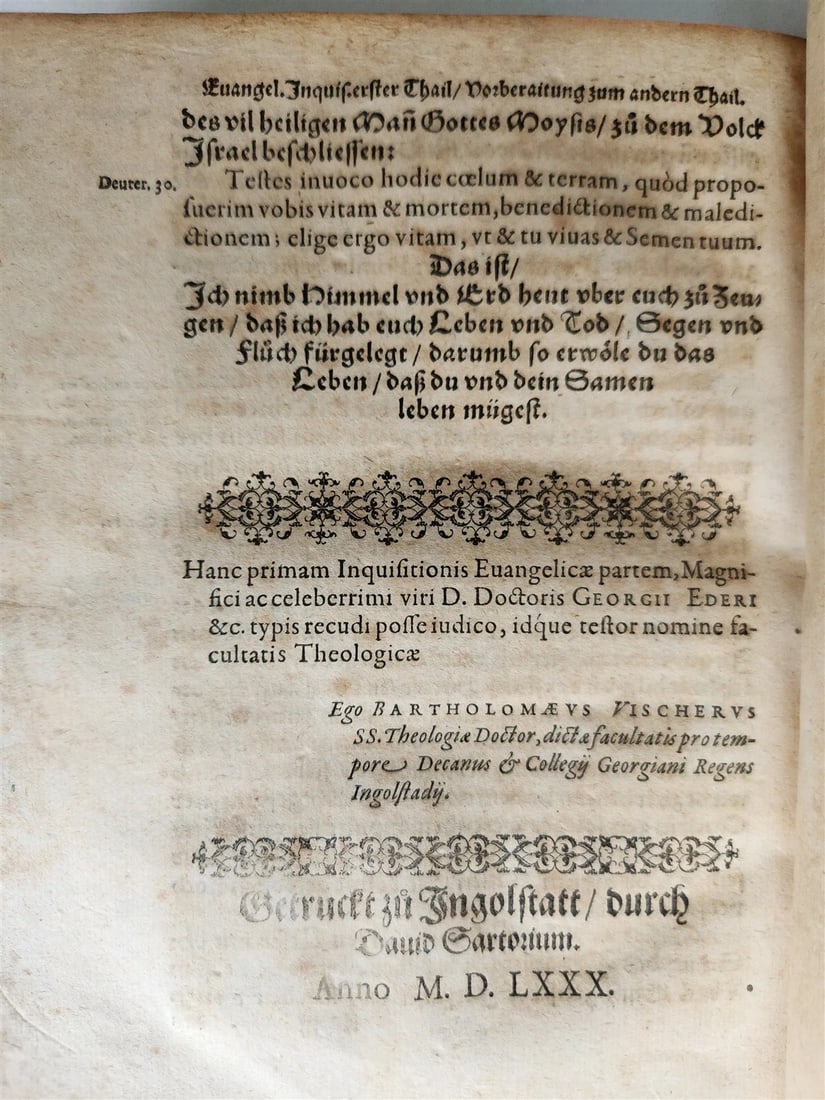 Euangel. Inquis. erster Thail / Vorberaitung zum andern Thail.
des vil heiligen Mañ Gottes Moysis / zů dem Volck
Israel beschliessen:
Deuter. 30.
Testes inuoco hodie cœlum & terram, quòd propo-
suerim vobis vitam & mortem, benedictionem & maledi-
ctionem; elige ergo vitam, vt & tu viuas & Semen tuum.
Das ist /
Ich nimb Himmel vnd Erd heut vber euch zů Zeu-
gen / daß ich hab euch Leben vnd Tod / Segen vnd
Flůch fürgelegt / darumb so erwöle du das
Leben / daß du vnd dein Samen
leben mügest.
Hanc primam Inquisitionis Euangelicæ partem, Magni-
fici ac celeberrimi viri D. Doctoris GEORGII EDERI
&c. typis recudi posse iudico, idq́ue testor nomine fa-
cultatis Theologicæ
Ego BARTHOLOMÆVS VISCHERVS
SS. Theologiæ Doctor, dictæ facultatis pro tem-
pore Decanus & Collegij Georgiani Regens
Ingolstadij.
Getruckt zů Ingolstatt / durch
Dauid Sartorium.
Anno M. D. LXXX.